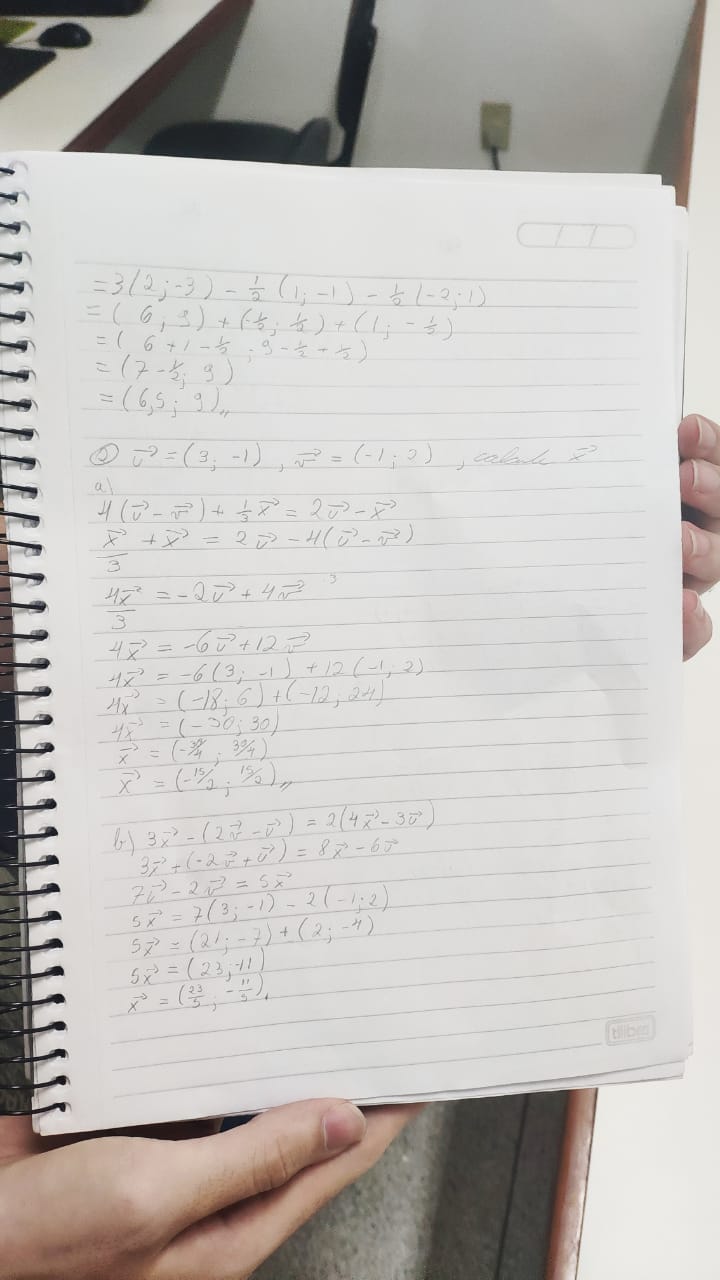 = 3(2; -3) - 1/2 (1; -1) - 1/2 (-2; 1)
= ( 6, 9) + (-1/2; 1/2) + (1; -1/2)
= ( 6 + 1 - 1/2 ; 9 - 1/2 + 1/2)
= (7 - 1/2; 9)
= (6,5; 9)
② u⃗ = (3; -1), v⃗ = (-1; 2), calcule x⃗
a)
4(u⃗ - v⃗) + 1/3 x⃗ = 2u⃗ - x⃗
x⃗/3 + x⃗ = 2u⃗ - 4(u⃗ - v⃗)
4x⃗/3 = -2u⃗ + 4v⃗
4x⃗ = -6u⃗ + 12v⃗
4x⃗ = -6(3; -1) + 12(-1; 2)
4x⃗ = (-18; 6) + (-12; 24)
4x⃗ = (-30; 30)
x⃗ = (-30/4; 30/4)
x⃗ = (-15/2; 15/2)
b) 3x⃗ - (2v⃗ - u⃗) = 2(4x⃗ - 3u⃗)
3x⃗ + (-2v⃗ + u⃗) = 8x⃗ - 6u⃗
7u⃗ - 2v⃗ = 5x⃗
5x⃗ = 7(3; -1) - 2(-1; 2)
5x⃗ = (21; -7) + (2; -4)
5x⃗ = (23; -11)
x⃗ = (23/5; -11/5).
tilibra